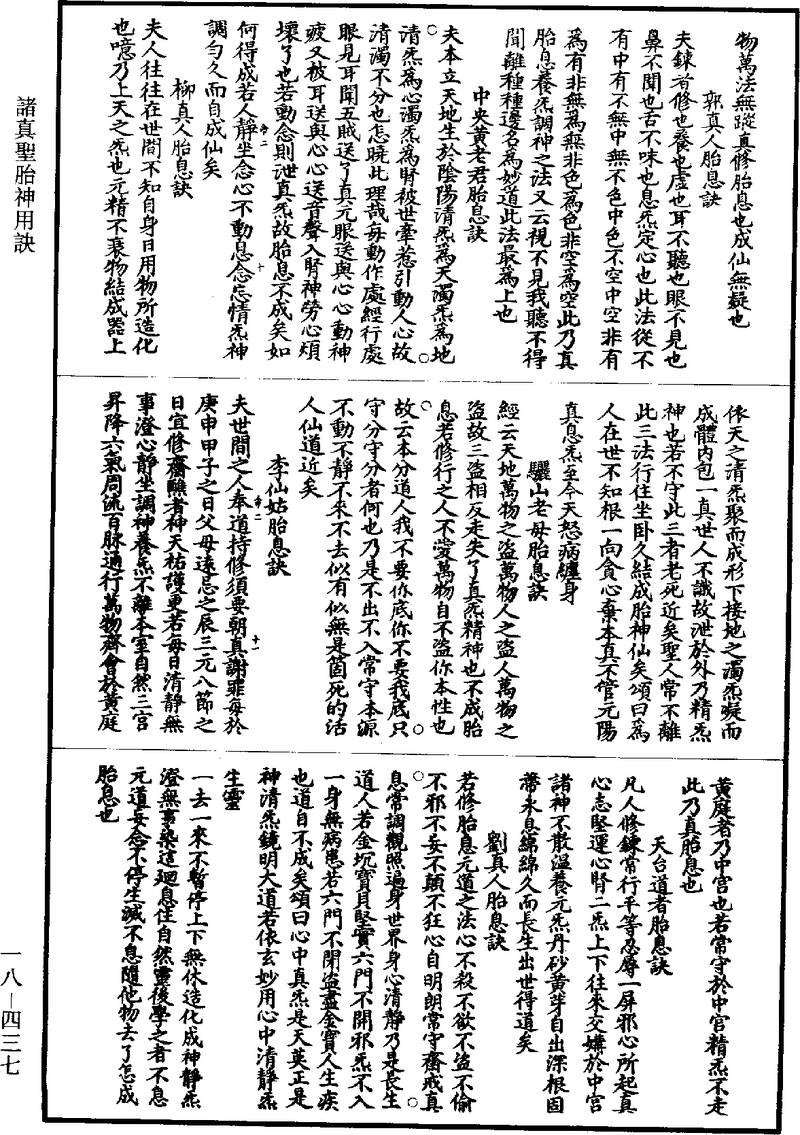 諸真聖胎神用訣
一八—四三七
物萬法無蹤真修胎息也成仙無疑也
郭真人胎息訣
夫鍊者修也養也虛也耳不聽也眼不見也
鼻不聞也舌不味也息炁定心也此法從不
有中有不無中無不色中色不空中空非有
為有非無為無非色為色非空為空此乃真
胎息養炁調神之法又云視不見我聽不得
聞離種種邊名為妙道此法最為上也
中央黃老君胎息訣
夫本立天地生於陰陽清炁為天濁炁為地
清炁為心濁炁為腎被世牽惹引動人心故
清濁不分也怎曉此理哉每動作處經行處
眼見耳聞五賊送了真元眼送與心心動神
疲又被耳送與心心送音聲入腎神勞心煩
壞了也若動念則泄真炁故胎息不成矣如
何得成若人靜坐念心不動息念忘情炁神
調勻久而自成仙矣
柳真人胎息訣
夫人往往在世間不知自身日用物所造化
也噫乃上天之炁也元精不衰物結成器上
依天之清炁聚而成形下接地之濁炁凝而
成體內包一真世人不識故泄於外乃精炁
神也若不守此三者老死近矣聖人常不離
此三法行住坐卧久結成胎神仙矣頌曰為
人在世不知根一向貪心棄本真不管元陽
真息炁至今天怒病纏身
驪山老母胎息訣
經云天地萬物之盜萬物人之盜人萬物之
盜故三盜相反走失了真炁精神也不成胎
息若修行之人不愛萬物自不盜你本性也
故云本分道人我不要你底你不要我底只
守分守分者何也乃是不出不入常守本源
不動不靜不來不去似有似無是箇死的活
人仙道近矣
李仙姑胎息訣
夫世間之人奉道持修須要朝真謝罪每於
庚申甲子之日父母遠忌之辰三元八節之
日宜修齋醮者神天祐護更若每日清靜無
事澄心靜坐調神養炁不離本室自然三宮
昇降六氣周流百脉通行萬物齊會於黃庭
黃庭者乃中宮也若常守於中宮精炁不走
此乃真胎息也
天台道者胎息訣
凡人修鍊常行平等忍辱一屏邪心所起真
心志堅運心腎二炁上下往來交媾於中宮
諸神不散溫養元炁丹砂黃芽自出深根固
蒂永息綿綿久而長生出世得道矣
劉真人胎息訣
若修胎息元道之法心不殺不欲不盜不偷
不邪不妄不顛不狂心自明朗常守齋戒真
息常調觀照遍身世界身心清靜乃是長生
道人若金坑寶貝堅實六門不開邪炁不入
一身無病患若六門不閉盜盡金寶人生疾
也道自不成矣頌曰心中真炁是天英正是
神清炁鏡明大道若依玄妙用心中清靜炁
生靈
一去一來不暫停上下無休造化成神靜炁
澄無事染這迴息住自然靈後學之者不息
元道妄念不停生滅不息隨他物去了怎成
胎息也